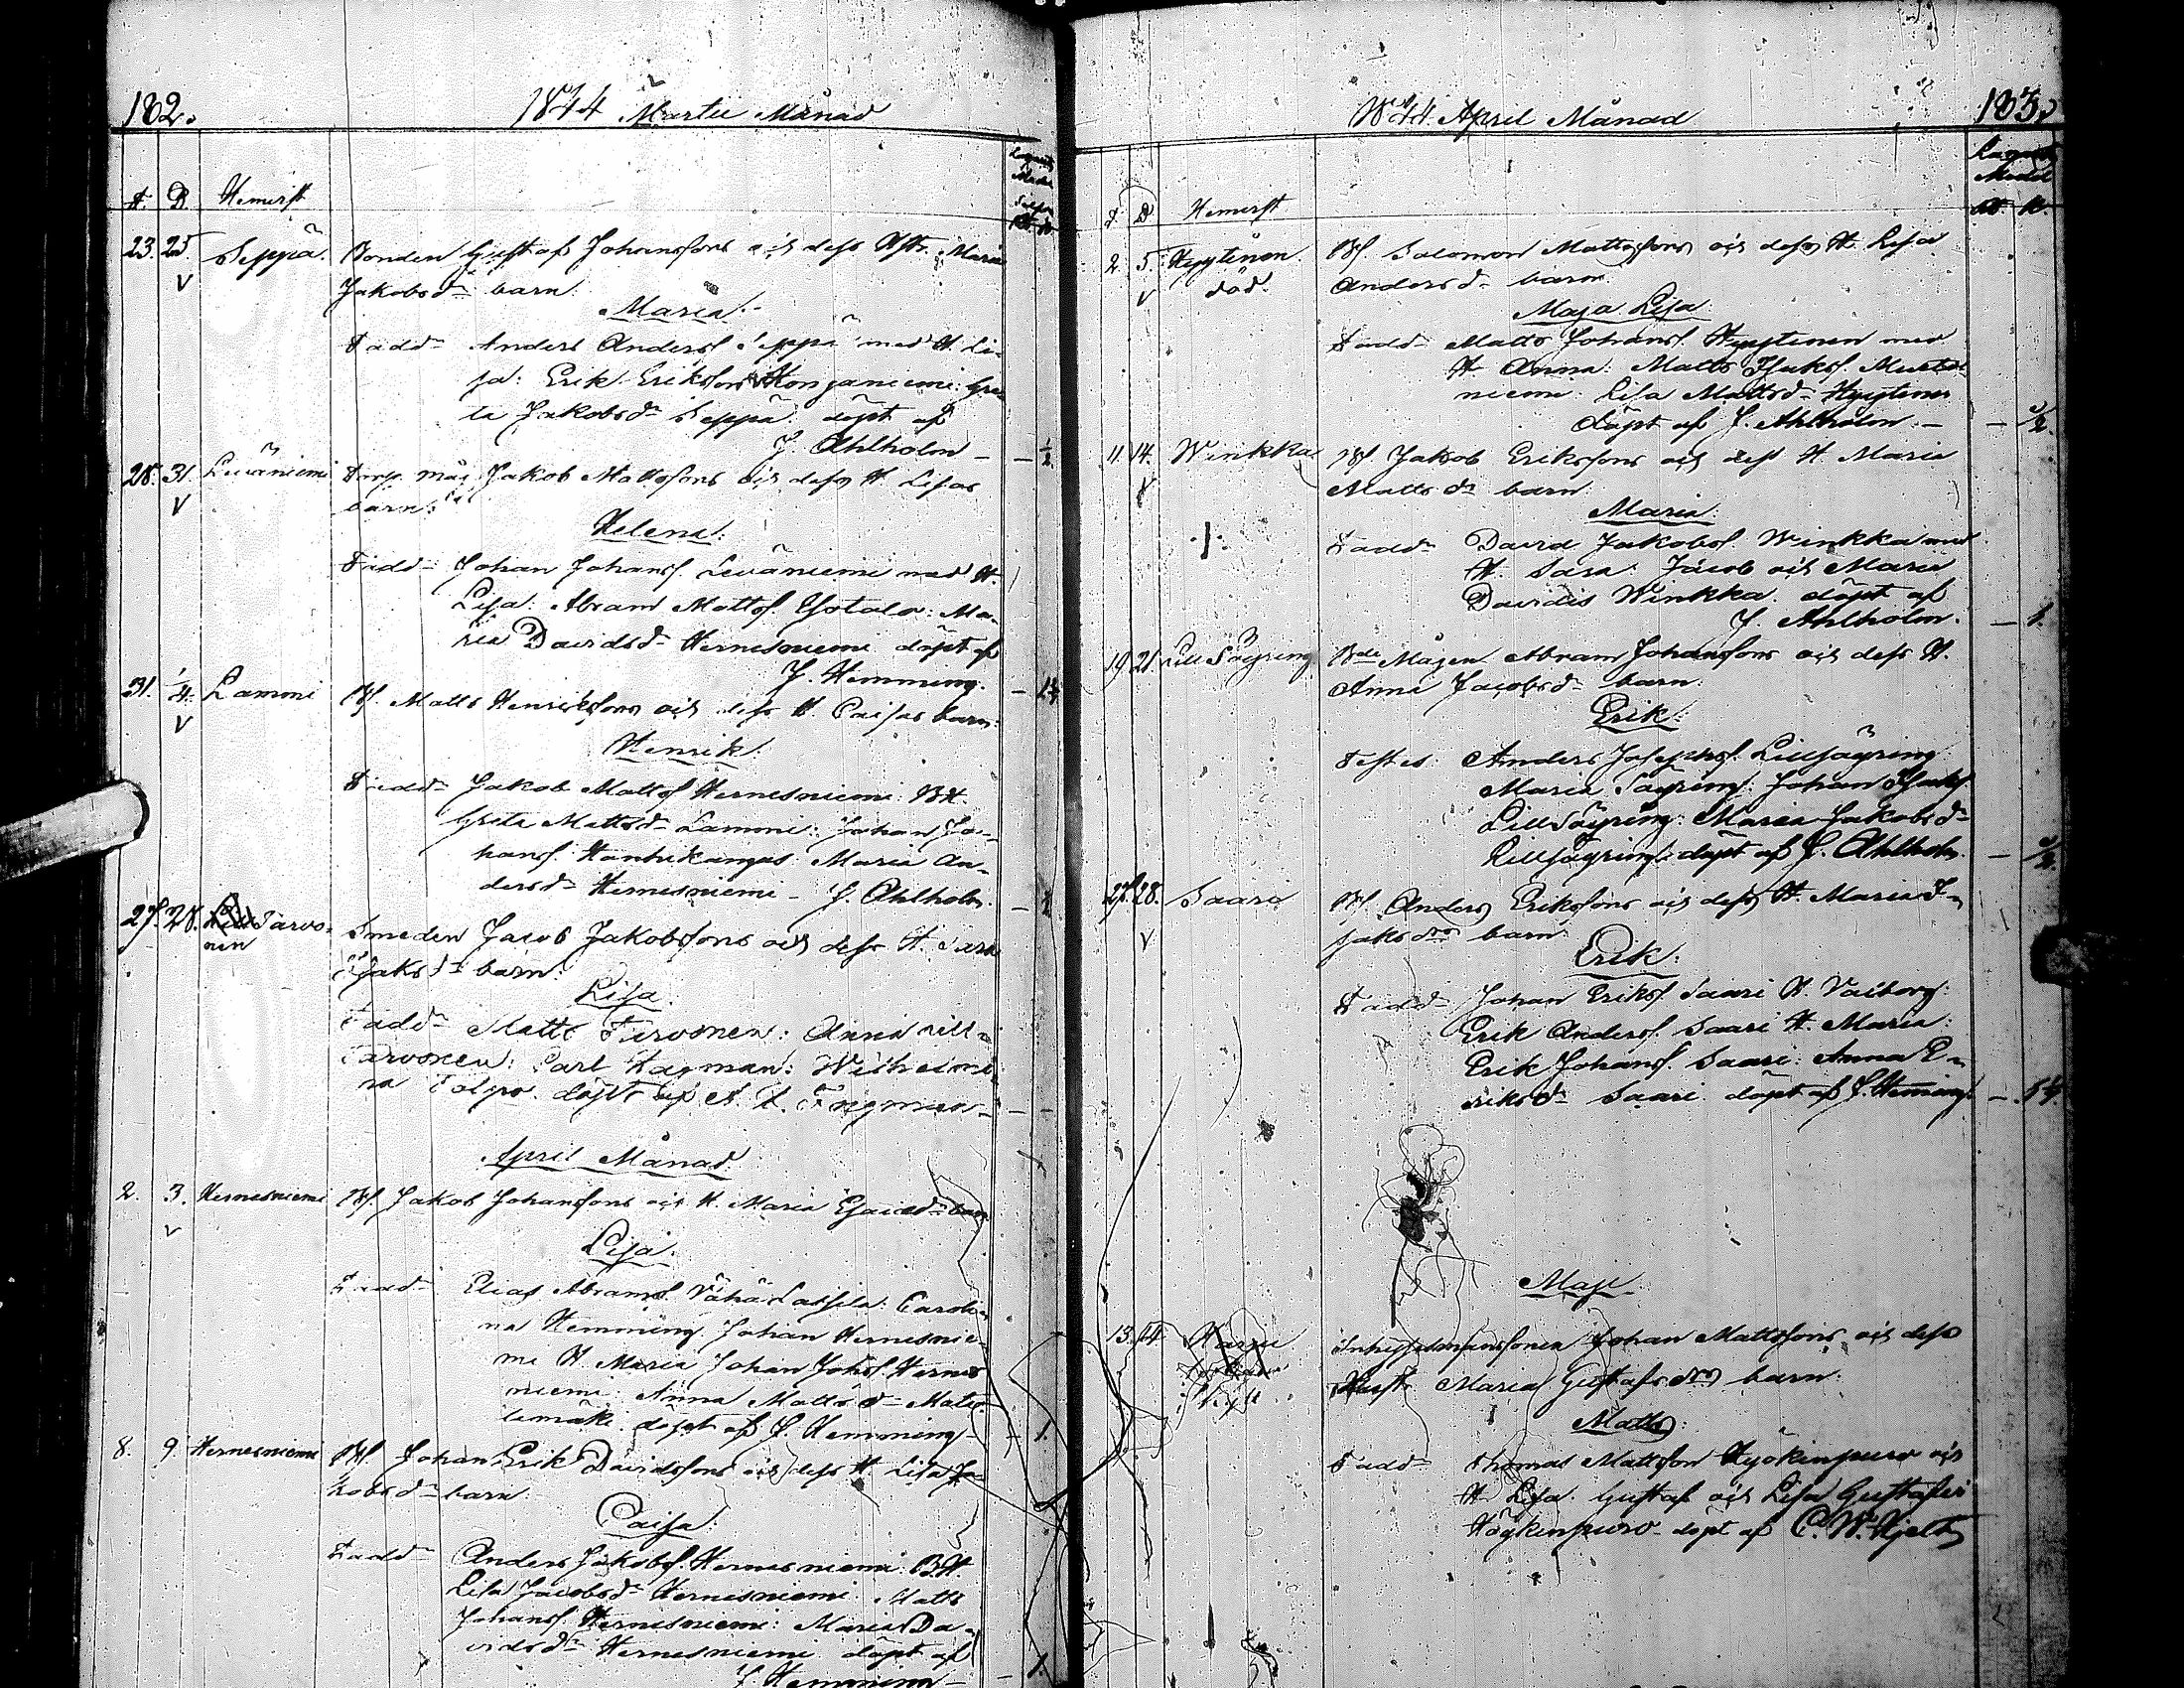 182.
1844 Martii Månad
F. D. Hemvist
23. 25. Seppä. Bonden Gustaf Johansfons och dess Hstr. Maria
Jakobsdr barn:
Maria.
Fadd. Anders Andersf Seppä med H. Li-
sa: Erik Eriksfons Honganiemi: Gre-
ta Jakobsdr Seppä döpt af
J. Ahlholm – – ½
28. 31. Leväniemi Torp. måg Jakob Mattsfons och dess H. Lisas
barn:
Helena.
Fadd. Johan Johansf. Leväniemi med H.
Lisa: Abram Mattsf. Esotalo: Ma-
ria Davidsdr Hernesniemi döpt af
J. Hemming.
31. 1/4. Lammi Bf. Matts Henriksfons och dess H. Caisas barn:
Henrik.
Fadd. Jakob Mattsf Hernesniemi: BH.
Greta Mattsdr Lammi: Johan Jo-
hansf. Hanhikangas: Maria An-
dersdr Hernesniemi – J. Ahlholm.
27. 28. Tarvo-
nen
Smeden Jacob Jakobsfons och dess H. Sara
Isaksdr barn:
Lisa.
Fadd. Matts Tarvonen: Anna Lill-
Tarvonen: Carl Hagman: Wilhelmi-
na döpt af
April Månad
2. 3. Hernesniemi Bf. Jakob Johansfons och H. Maria Esaiedr barn
Lisa.
Fadd. Elias Abramsf. Vähä Lassila: Caroli-
na Hemming. Johan Hernesnie-
mi H. Maria Johan Johsf. Hernes
niemi: Anna Mattsdr
döpt af J. Hemming – – 1.
8. 9. Hernesniemi Bf. Johan Erik Davidsfons och dess H. Lisa Ja-
kobsdr barn:
Caisa:
Fadd. Anders Jakobsf. Hernesniemi: BH.
Lisa Jacobsdr Hernesniemi. Matts
Johansf. Hernesniemi: Maria Da-
vidsdr Hernesniemi döpt af
J. Hemming – – 1.
1844. April Månad
183.
F. D. Hemvist
2. 5. Hyytinen. Bf. Salomon Mattsfons och dess H. Lisa
död. Andersdr barn:
Maja Lisa.
Fadd. Matts Johansf. Hyytinen med
H. Anna: Matts Isaksf. Musta-
niemi: Lisa Mattsdr Hyytinen
döpt af J. Ahlholm. –
11. 14. Winkka Bf Jakob Eriksfons och dess H. Maria
Mattsdr barn:
Maria:
Fadd. David Jakobsf. Winkka med
H. Sara: Jacob och Maria
Davidis Winkka. döpt af
J. Ahlholm. – 1.
19. 21. Lill Säyring Bde Mågen Abram Johansfons och dess H.
Anna Jacobsdr barn:
Erik:
Testes: Anders Josephsf. Lillsäyring
Maria Säyring: Johan Isaksf.
Lillsäyring: Maria Jakobsdr
Lillsäyring: döpt af J. Ahlholm.
27. 28. Saari Bf. Anders Eriksfons och dess H. Maria I-
saksdrs barn:
Erik:
Fadd. Johan Eriksf. Saari H. Valborg:
Erik Andersf. Saari H. Maria:
Erik Johansf. Saari: Anna E-
riksdr Saari döpt af J. Heming
Maji
13. 14. Inhysesmansonen Johan Mattsfons och dess
Hustr. Maria Gustafsdrs barn:
Matts:
Fadd. Thomas Mattsfon Hyökinpuro och
H. Lisa. Gustaf och Lisa Gustafsi
Högkinpuro döpt af C. W. Hjelt